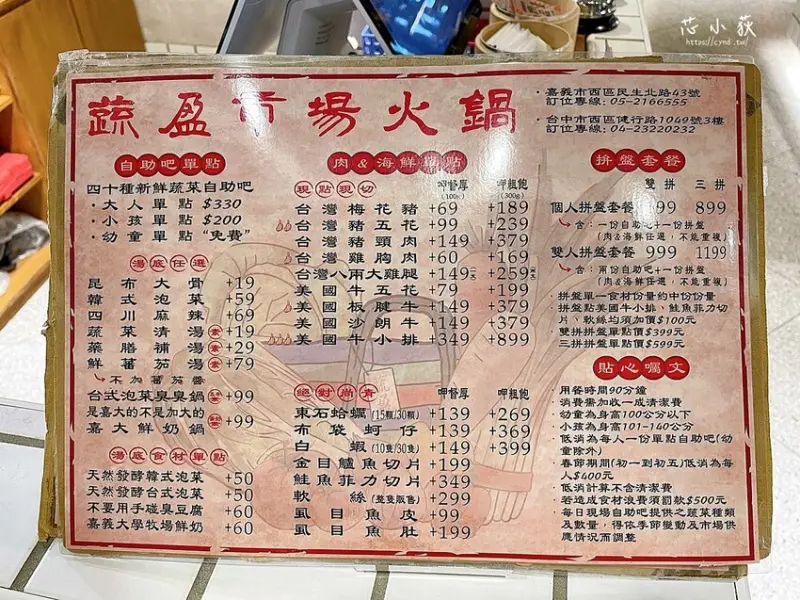 芯小荻
https://cyndi.tw/
蔬盈市場火鍋
·嘉義市西區民生北路43號
訂位專線: 05-2166555
·台中市西區健行路1049號3樓
訂位專線: 04-23220232
自助吧單點
四十種新鮮蔬菜自助吧
·大人單點 $330
·小孩單點 $200
·幼童單點 "免費"
湯底任選
昆布大骨 +19
韓式泡菜 +59
四川麻辣 +69
蔬菜清湯 素 +19
藥膳補湯 素 +29
鮮蕃茄湯 素 +79
不加蕃茄醬
台式泡菜臭臭鍋 +99
是嘉大的不是加大的
嘉大鮮奶鍋 +99
湯底食材單點
天然發酵韓式泡菜 +50
天然發酵台式泡菜 +50
不要用手碰臭豆腐 +60
嘉義大學牧場鮮奶 +60
肉&海鮮單點
現點現切 呷督厚 (100g) 呷粗飽 (300g)
台灣梅花豬 +69 +189
台灣豬五花 +99 +239
台灣豬頸肉 +149 +379
台灣雞胸肉 +60 +169
台灣八兩大雞腿 +149 +259
美國牛五花 +79 +199
美國板腱牛 +149 +379
美國沙朗牛 +149 +379
美國牛小排 +349 +899
絕對尚青 呷督厚 呷粗飽
東石蛤蠣 (15顆/30顆) +139 +269
布袋蚵仔 +139 +369
白蝦 (10隻/30隻) +149 +399
金目鱸魚切片 +199
鮭魚菲力切片 +349
軟絲 (整隻販售) +299
虱目魚皮 +99
虱目魚肚 +199
拼盤套餐
雙拼 三拼
個人拼盤套餐 699 899
含:一份自助吧+一份拼盤
(肉&海鮮任選,不能重複)
雙人拼盤套餐 999 1199
含:兩份自助吧+一份拼盤
(肉&海鮮任選,不能重複)
·拼盤單一食材份量約中份份量
·拼盤點美國牛小排、鮭魚菲力切
片、軟絲均須加價$100元
·雙拼拼盤單點價$399元
·三拼拼盤單點價$599元
貼心囑文
·用餐時間90分鐘
·消費需加收一成清潔費
·幼童為身高100公分以下
·小孩為身高101-140公分
·低消為每人一份單點自助吧(幼
童除外)
·春節期間(初一到初五)低消為每
人$400元
·低消計算不含清潔費
·若造成食材浪費須罰款$500元
·每日現場自助吧提供之蔬菜種類
及數量,得依季節變動及市場供
應情況而調整